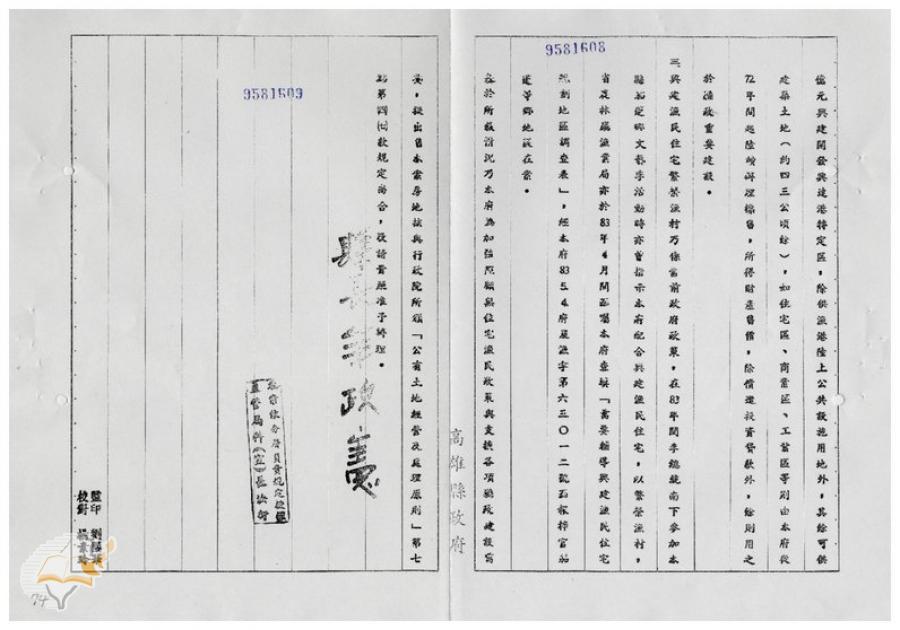 9581608
億元興建開發興達港特定區，除供漁港陸上公共設施用地外，其餘可供
建築土地（約四三公頃餘），如住宅區、商業區、工業區等則由本府從
72年間起陸續辦理標售，所得財產售價，除償還投資貸款外，餘則用之
於漁政重要建設。
三興建漁民住宅繁榮漁村乃係當前政府政策，在83年間李總統南下參加本
縣 鄉文藝季活動時亦曾指示本府配合興建漁民住宅，以繁榮漁村，
省農林廳漁業局亦於83年4月間函囑本府查填「需要輔導興建漁民住宅
規劃地區調查表」，經本府83.5.4府農漁字第六三〇一二號函報梓官
等鄉地區在案。
為加強照顧無住宅漁民政策與支援各項 政建設需
高雄縣政府
9581609
要，擬出售本案房地核與行政院所頒「公有土地經營及處理原則」第七
點第四㈦款規定尚合，敬請 鑒照准予辦理。
縣長余政憲
本案依分層負責規定授權
主管局科(室)長決行
監印
校對
74